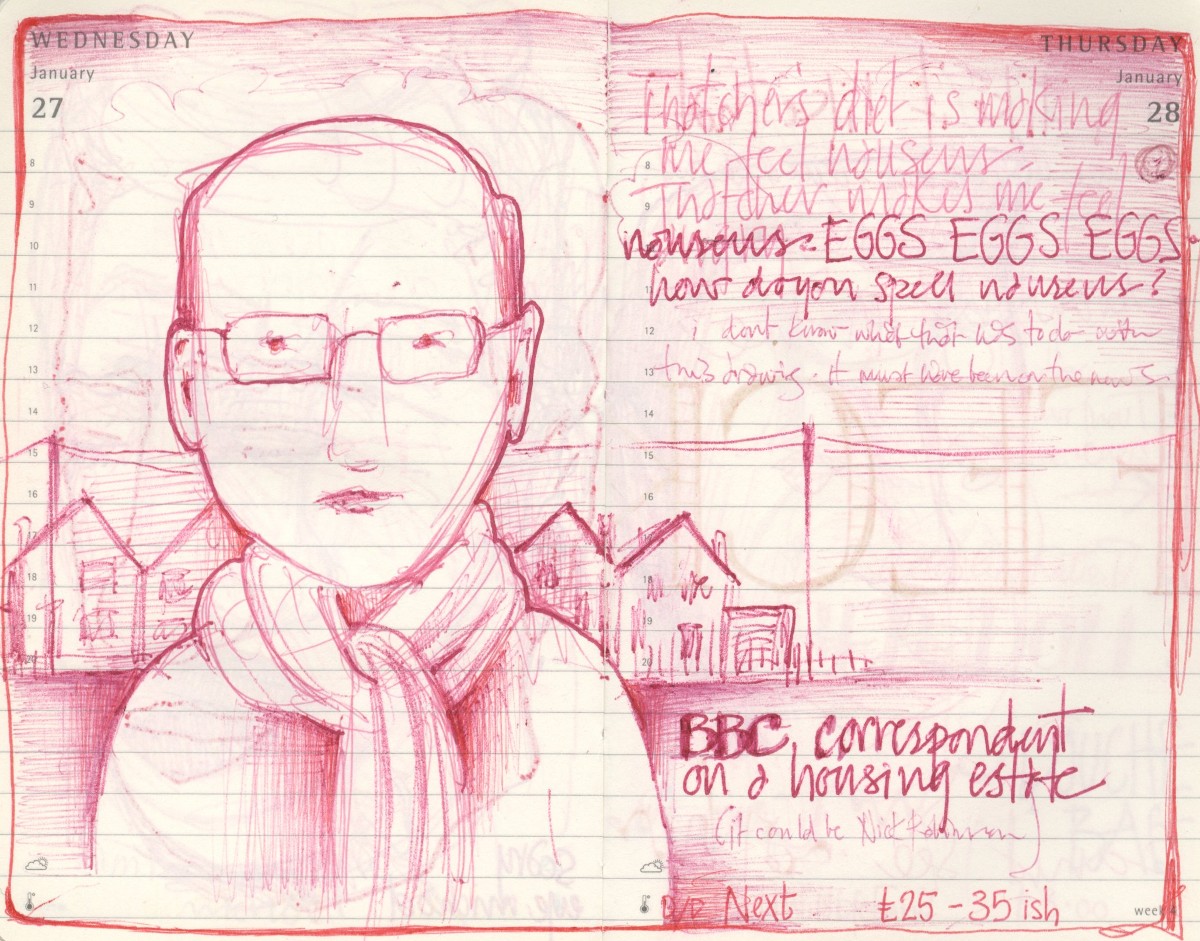 WEDNESDAY
January
27
8
9
10
11
12
13
14
15
16
18
19
20
THURSDAY
January
28
Thatcher's diet is making
me feel nauseus.
Thatcher makes me feel
nauseus. EGGS EGGS EGGS
how do you spell nauseus?
i dont know what that has to do with
this drawing. it must have been on the news
8
9
11
12
13
14
15
16
18
19
20
BBC correspondent
on a housing estate
(it could be Nick Robinson)
Next £25-35 ish
week 4